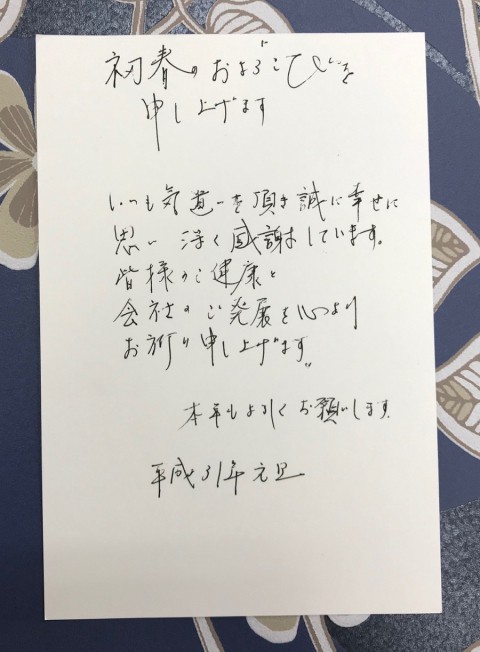 初春のおよろこびを
申し上げます
いつも気遣いを頂き誠に幸せに
思い 深く感謝しています。
皆様のご健康と
会社のご発展を心より
お祈り申し上げます。
本年もよろしくお願いします。
平成31年 元旦